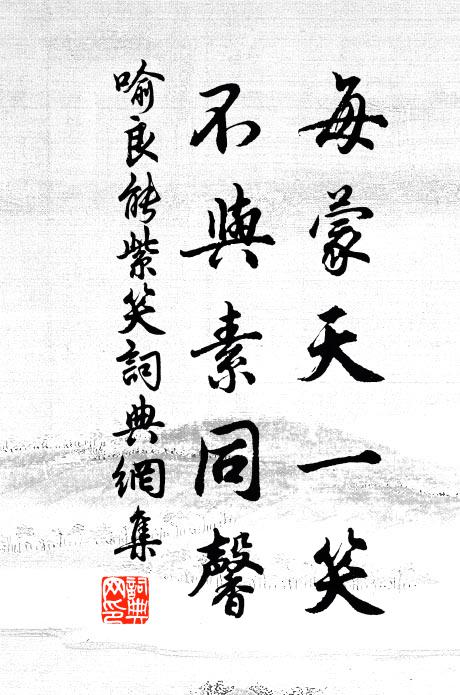 每蒙天一笑
不與素同馨
喻良能紫笑詞典網集
詞典
网印